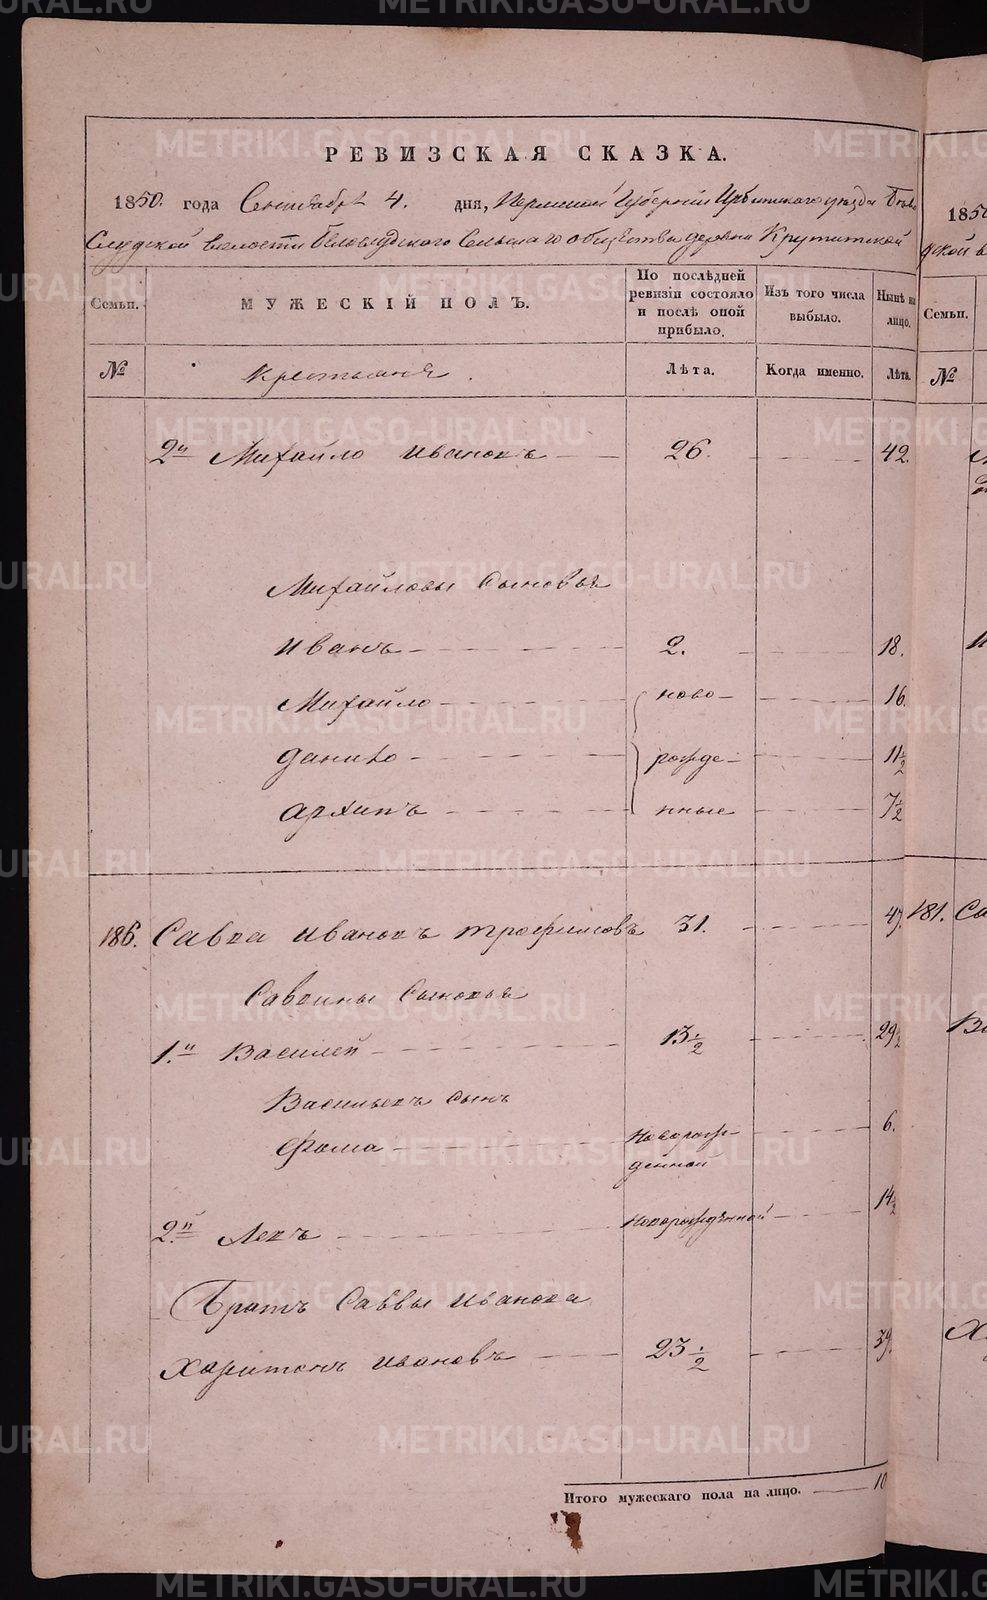 РЕВИЗСКАЯ СКАЗКА.
1850. года Сентября 4. дня, Пермской Губернии Ирбитского уезда Бело
Слудской волости Белослудского Сельскаго общества деревни Крутитской
Семьи.
МУЖЕСКІЙ ПОЛЪ.
По послѣдней ревизіи состояло и послѣ оной прибыло.
Изъ того числа выбыло.
Нынѣ на лицо.
№
Крестьяне.
Лѣта.
Когда именно.
Лѣта.
2й Михайло Ивановъ 26. 42.
Михайловы Сыновья
Иванъ 2. 18.
Михайло ново- 16.
Данило рожде- 11½
Архипъ нные 7½
186. Савва Ивановъ Трофимовъ 31. 47.
Саввины Сыновья
1.й Василей 13½ 29½
Васильевъ Сынъ
Фома Новорож- 6.
денной
2.й Левъ Новорожденной 14½
Братъ Саввы Иванова
Харитонъ Ивановъ 23½ 39.
Итого мужескаго пола на лицо. 10
1850
Семьи.
№
181. Са
METRIKI.GASO-URAL.RU